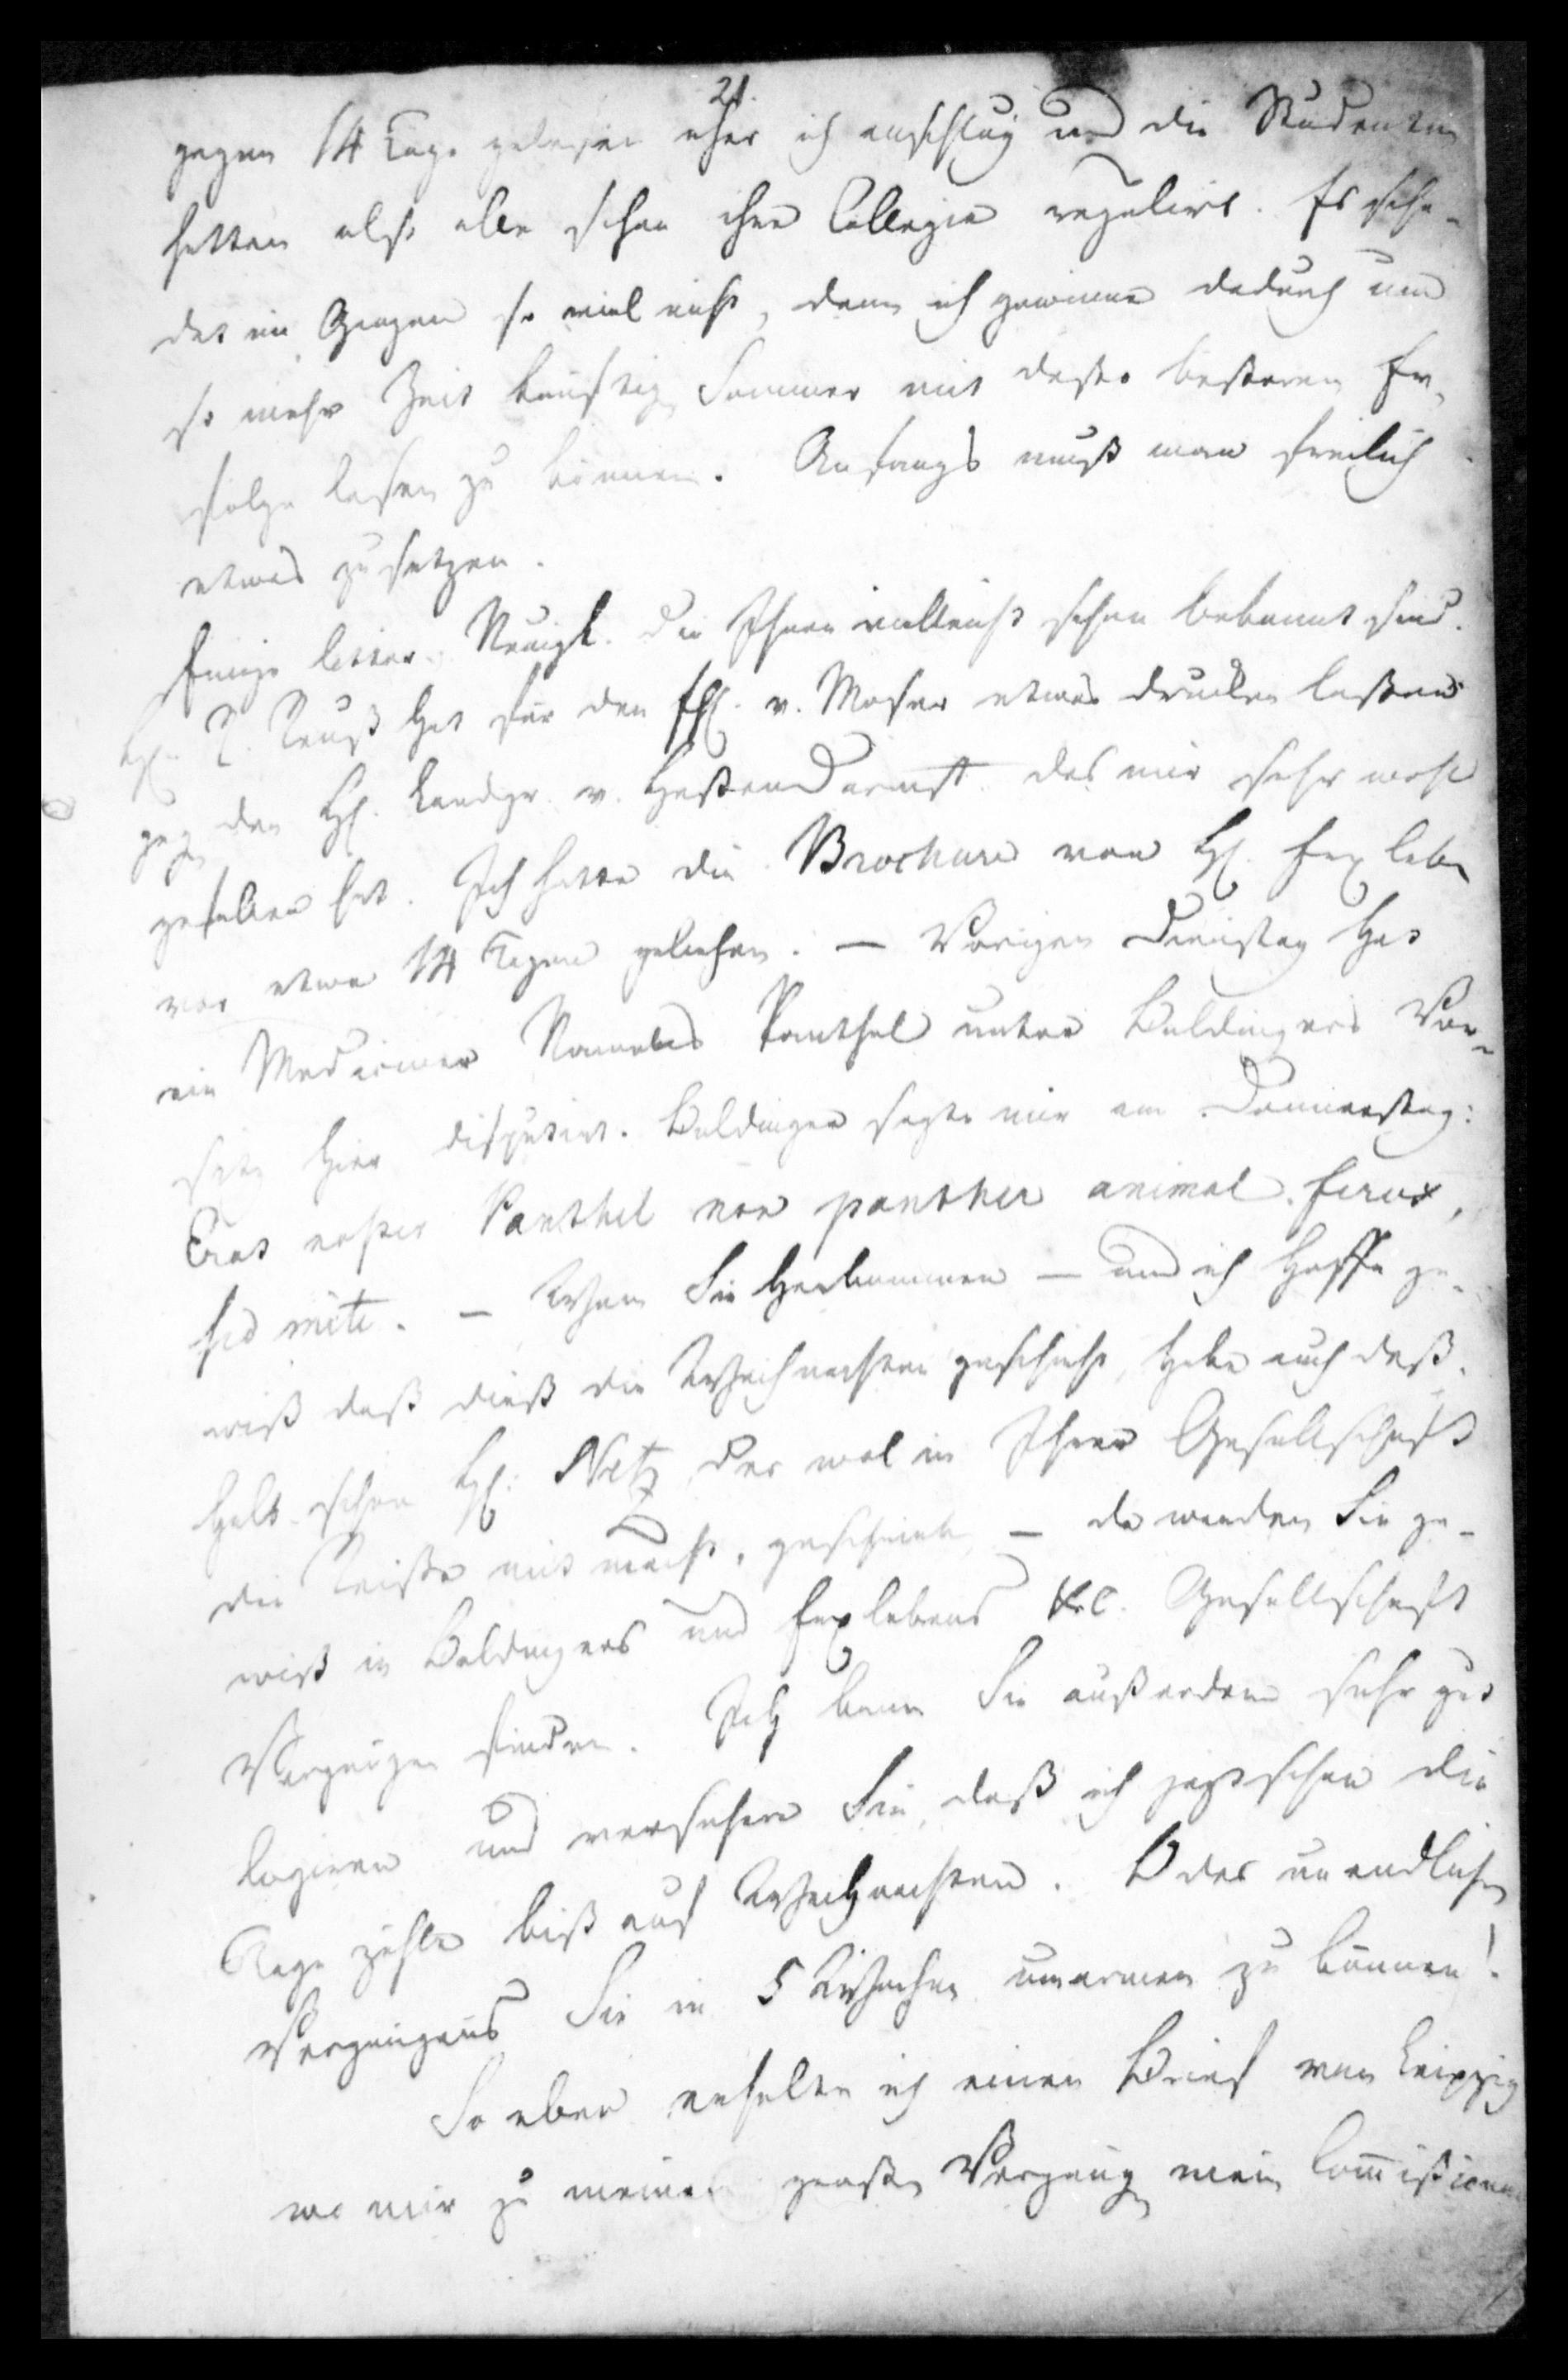 21.
gegen 14 Tage gelesen eher ich anschlug und die Studenten
hatten also alle schon ihre Collegia regulirt. Es scha-
det im Ganzen so viel nicht, denn ich gewinne dadurch um
so mehr Zeit künftig Sommer mit desto besseren Er-
folge lesen zu können. Anfangs muß man freilich
etwas zusetzen.
Einige litter. Neuigk. die Ihnen vielleicht schon bekannt sind.
H. R. Reuß hat für den FH. v. Moser etwas drucken laßen
geg. den H. Landgr. v. HeßenDarmst. das mir sehr wohl
gefallen hat. Ich hatte die Brochure von H. Erxleben
vor etwa 14 Tagen geliehen. — Vorigen Dienstag hat
ein Mediciner Namens Panthel unter Baldingers Vor-
satz hier disputirt. Baldinger sagte mir am Donnerstag:
Erat noster Panthel non panther animal ferox,
sed mite. — Wenn Sie herkommen — und ich hoffe ge-
wiß daß dieß die Weihnachten geschieht, habe auch deß-
halb schon H. Netz der wol in Ihrer Gesellschaft
die Reiße mit macht, geschrieben — da werden Sie ge-
wiß in Baldingers und Erxlebens &c. Gesellschaft
Vergnügen finden. Ich kann Sie außerdem sehr gut
logiren und versichere Sie, daß ich jezt schon die
Tage zähle biß auf Weihnachten. O des unendlichen
Vergnügens Sie in 5 Wochen umarmen zu können!
So eben erhalte ich einen Brief von Leipzig
wo mir zu meinem großen Vergnügen mein Commißionär